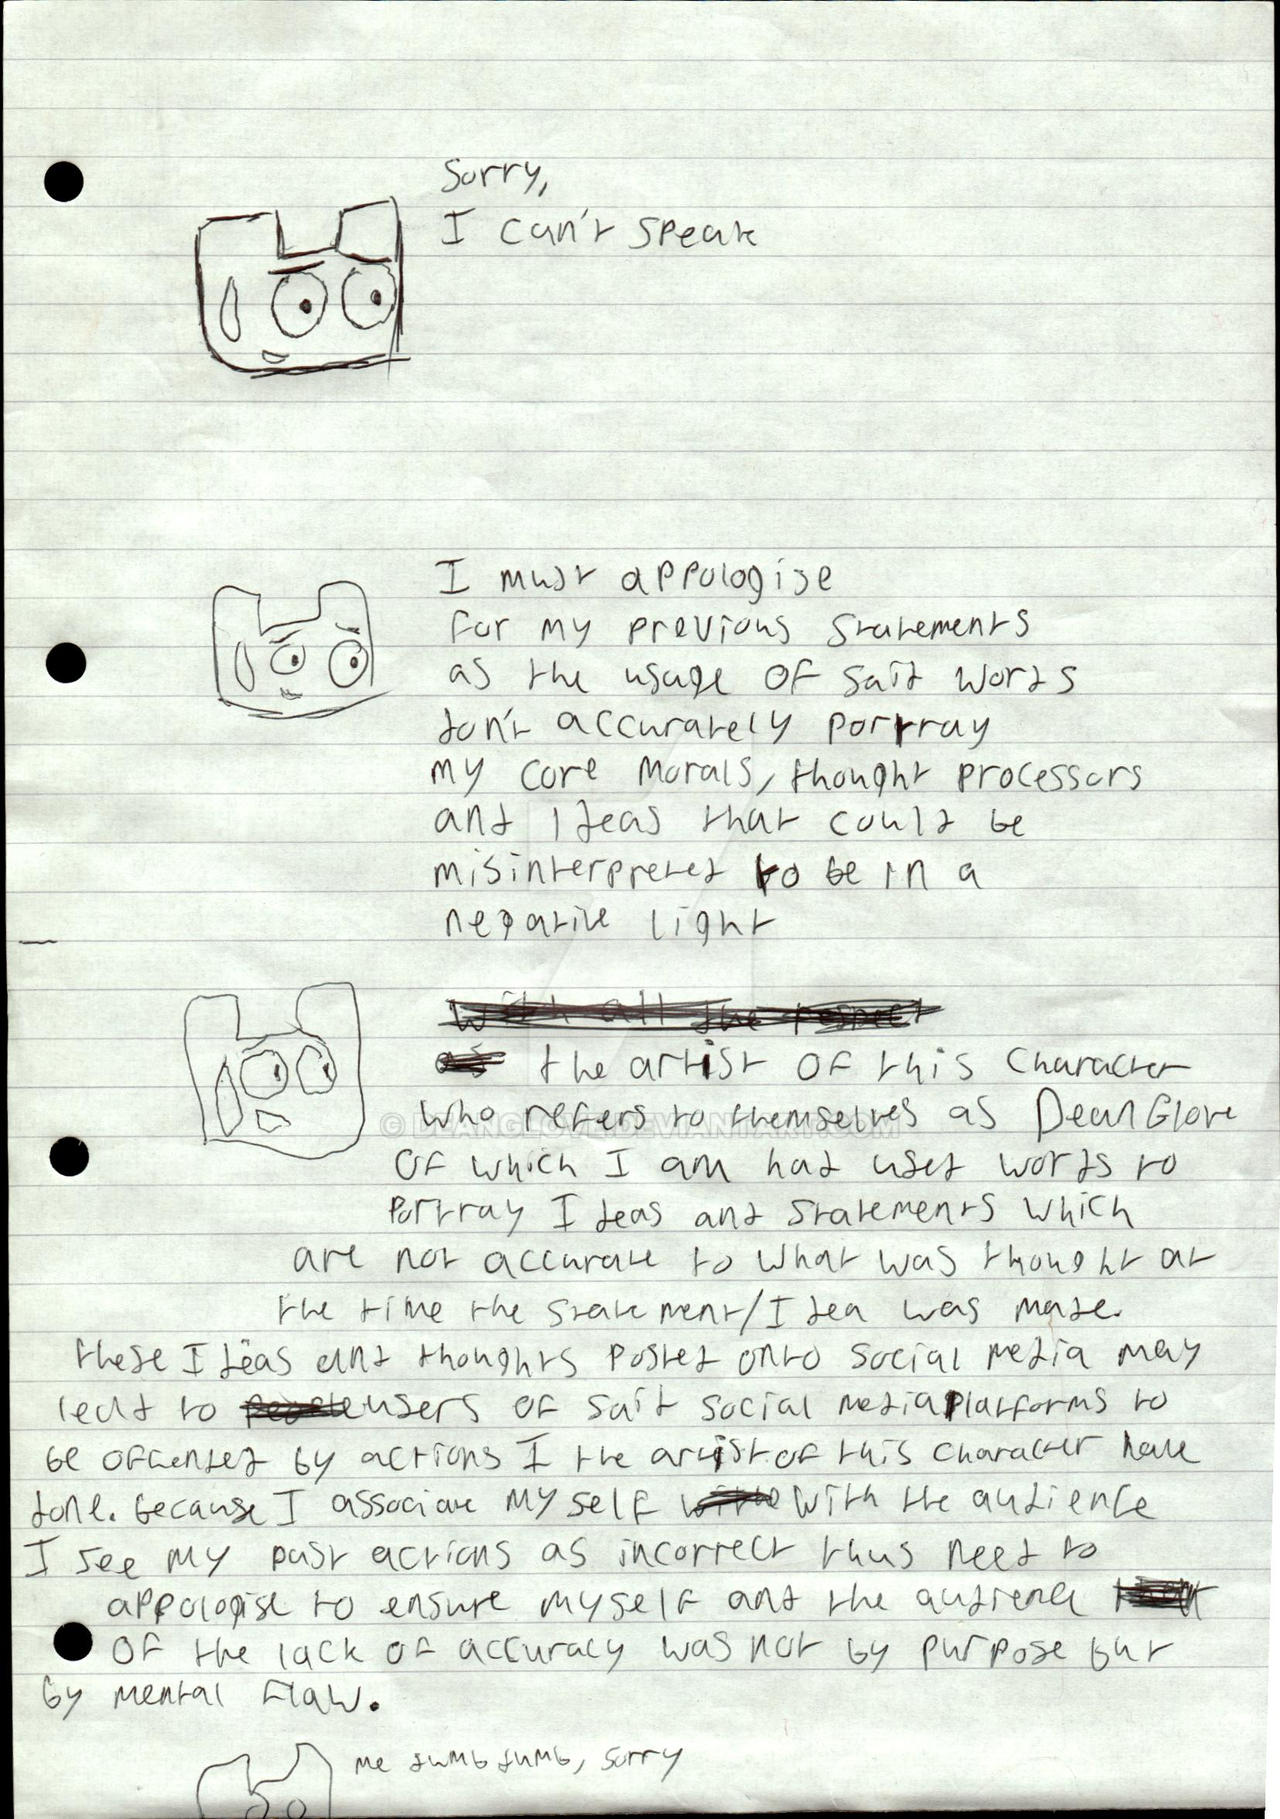 Sorry,
I can't speak
I must appologise
for my previous statements
as the usage of said words
don't accurately portray
my core morals, thought processors
and Ideas that could be
misinterpreted to be in a
negative light
With all the respect
as the artist of this character
who refers to themselves as DeanGlove
© DEANGLOVE.DEVIANTART.COM
of which I am had used words to
portray Ideas and statements which
are not accurate to what was thought at
the time the statement/Idea was made.
these Ideas and thoughts posted onto social media may
lead to people users of said social media platforms to
be offended by actions I the artist of this character have
done. because I associate myself with the audience
I see my past actions as incorrect thus need to
appologise to ensure myself and the audience
of the lack of accuracy was not by purpose but
by mental flaw.
me dumb dumb, sorry